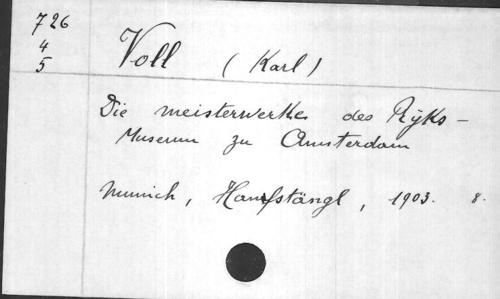 726
4
5
Voll (Karl)
Die meisterwerke des Rijks-
Museum zu Amsterdam
Munich, Hanfstängl, 1903. 8.